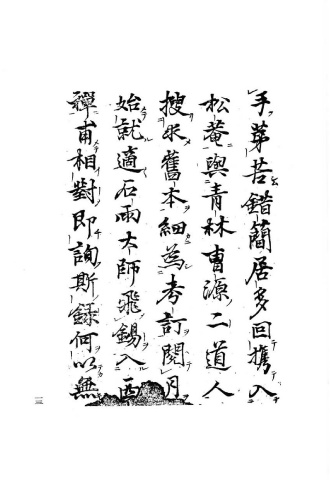 手苐苦錯簡居多回攜入
松菴與青林曹源二道人
搜求舊本細為考訂閱月
始就適石雨大師飛錫入西
禪甫相對即詢斯錄何以無